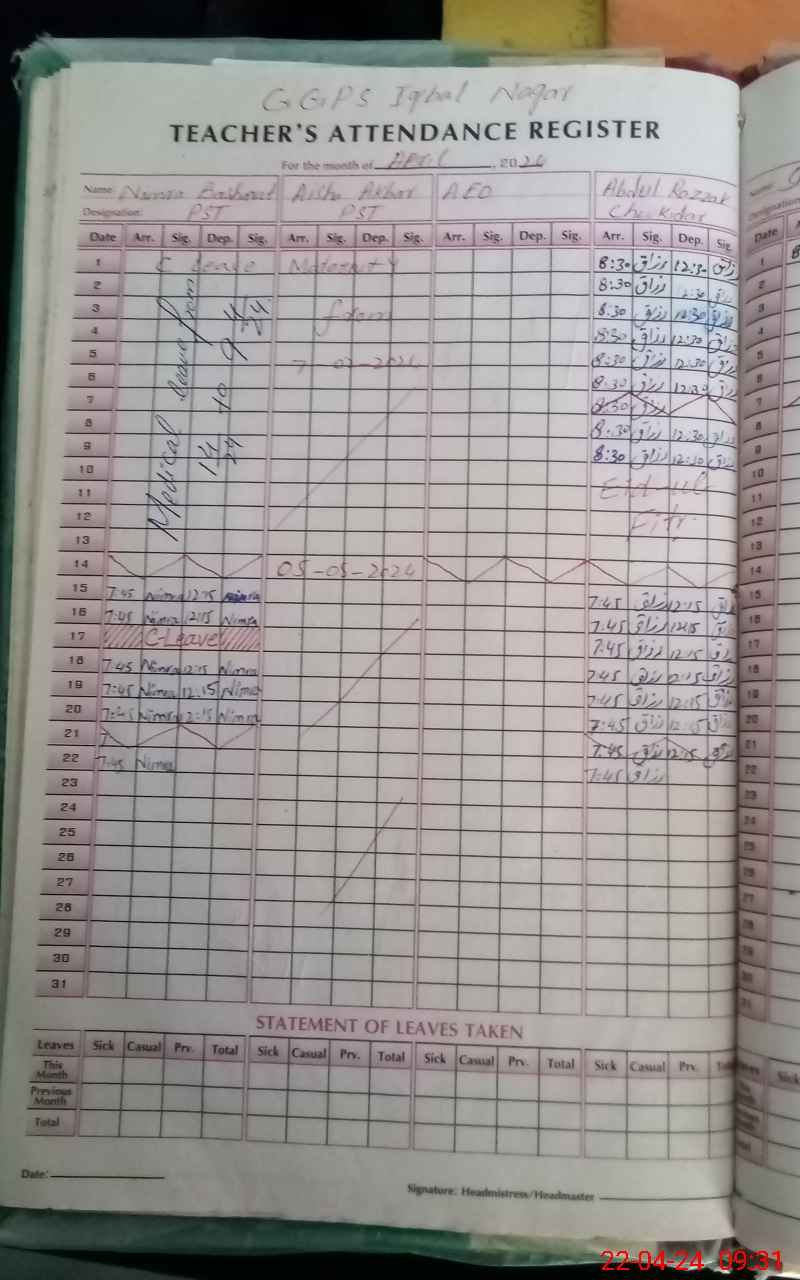 GGPS Iqbal Nagar
TEACHER'S ATTENDANCE REGISTER
For the month of April, 2024
Name: Aisha Akbar AEO Abdul Razzak
Designation: PST PST Chowkidar
Date Arr. Sig. Dep. Sig. Arr. Sig. Dep. Sig. Arr. Sig. Dep. Sig. Arr. Sig. Dep. Sig.
1 C Leave Maternity 8:30 رزاق 12:30 رزاق
2 8:30 رزاق 12:30 رزاق
3 from 8:30 رزاق 12:30 رزاق
4 8:30 رزاق 12:30 رزاق
5 8:30 رزاق 12:30 رزاق
6 8:30 رزاق 12:30 رزاق
7 8:30 رزاق
8 8:30 رزاق 12:30 رزاق
9 8:30 رزاق 12:30 رزاق
10
11 Eid-ul
12 Fitr
13
Medical leave from
14 05-05-2024
15 7:45 Nimra 12:15 Nimra 7:45 رزاق 12:15 رزاق
16 7:45 Nimra 12:15 Nimra 7:45 رزاق 12:15 رزاق
17 C-Leave 7:45 رزاق 12:15 رزاق
18 7:45 Nimra 12:15 Nimra 7:45 رزاق 12:15 رزاق
19 7:45 Nimra 12:15 Nimra 7:45 رزاق 12:15 رزاق
20 7:45 Nimra 12:15 Nimra 7:45 رزاق 12:15 رزاق
21 7:45 رزاق 12:15 رزاق
22 7:45 Nimra 7:45 رزاق
23
24
25
26
27
28
29
30
31
STATEMENT OF LEAVES TAKEN
Leaves Sick Casual Prv. Total Sick Casual Prv. Total Sick Casual Prv. Total Sick Casual Prv.
This Month
Previous Month
Total
Date:
Signature: Headmistress/Headmaster
22-04-24 09:31